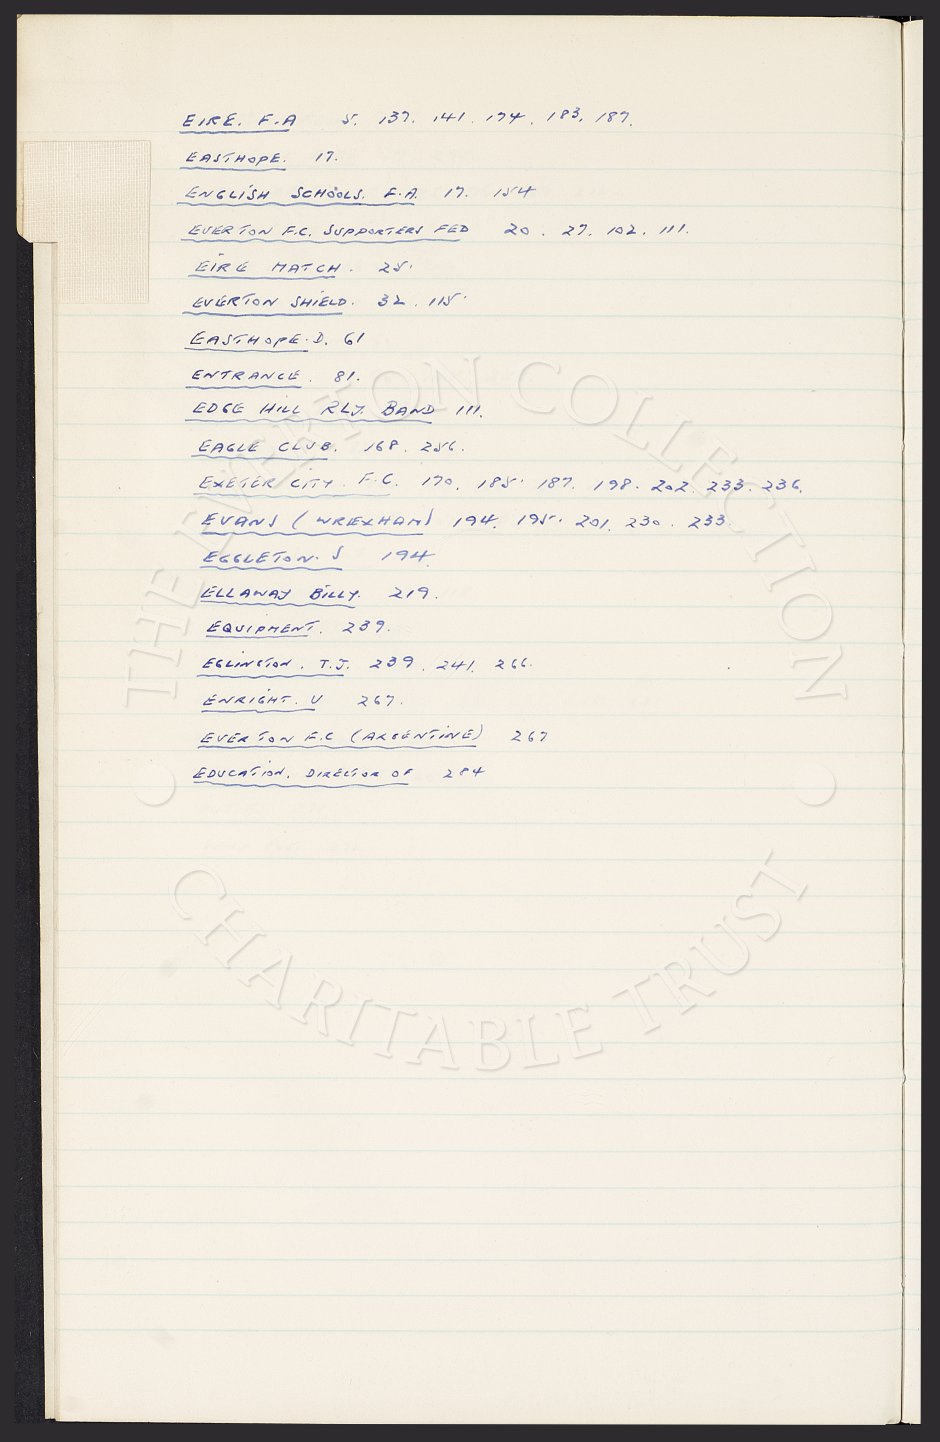 EIRE. F.A 5. 137. 141. 174. 183. 187.
EASTHOPE. 17.
ENGLISH SCHOOLS. F.A. 17. 154
EVERTON F.C. SUPPORTERS FED 20. 27. 102. 111.
EIRE MATCH. 25.
EVERTON SHIELD. 32. 115.
EASTHOPE. D. 61
ENTRANCE. 81.
EDGE HILL RLY. BAND 111.
EAGLE CLUB. 168. 256.
EXETER CITY. F.C. 170. 185. 187. 198. 202. 233. 236.
EVANS (WREXHAM) 194. 195. 201. 230. 233.
EGGLETON. S 194.
ELLAWAY BILLY. 219.
EQUIPMENT. 239.
EGLINGTON. T.J. 239. 241. 266.
ENRIGHT. V 267.
EVERTON F.C (ARGENTINE) 267
EDUCATION. DIRECTOR OF 284
THE EVERTON COLLECTION
CHARITABLE TRUST